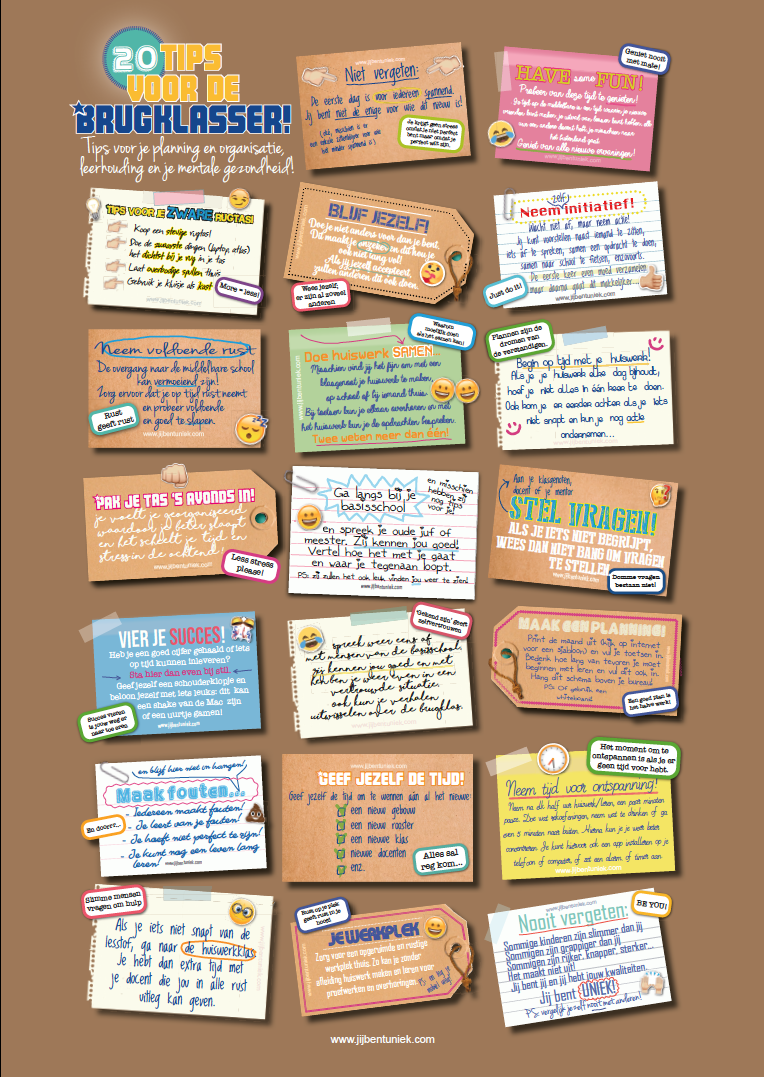 20 TIPS
VOOR DE
BRUGKLASSER!
Tips voor je planning en organisatie,
leerhouding en je mentale gezondheid!
www.jijbentuniek.com
Niet vergeten:
De eerste dag is voor iedereen spannend.
Jij bent niet de enige voor wie dit nieuw is!
Je krijgt geen stress
omdat je niet perfect
bent maar omdat je
perfect wilt zijn.
Geniet nooit
met mate!
HAVE some FUN!
Probeer van deze tijd te genieten!
Geniet van alle nieuwe ervaringen!
TIPS VOOR JE ZWARE RUGTAS!
Koop een stevige rugtas!
Doe de zwaarste dingen (laptop, atlas)
het dichtst bij je rug in je tas
Laat overbodige spullen thuis
Gebruik je kluisje als kast
More = less!
BLIJF JEZELF!
Doe je niet anders voor dan je bent.
Dit maakt je onzeker en dit kun je
ook niet lang vol!
Als jij jezelf accepteert,
zullen anderen dit ook doen.
Wees jezelf,
er zijn al zoveel
anderen
zelf
Neem initiatief!
Wacht niet af, maar neem actie!
Jij kunt voorstellen naast iemand te zitten,
iets af te spreken, samen een opdracht te doen,
samen naar school te fietsen, enzovoorts.
De eerste keer even moed verzamelen
maar daarna gaat dit makkelijker...
www.jijbentuniek.com
Just do it!
Neem voldoende rust
De overgang naar de middelbare school
kan vermoeiend zijn!
Zorg ervoor dat je op tijd rust neemt
en probeer voldoende
en goed te slapen.
www.jijbentuniek.com
Rust
geeft rust
Waarom
moeilijk doen
als het samen kan!
Doe huiswerk SAMEN...
Misschien vind jij het fijn om met een
klasgenoot je huiswerk te maken,
op school of bij iemand thuis.
Bij toetsen kun je elkaar overhoren en met
het huiswerk kun je de opdrachten bespreken.
Twee weten meer dan één!
Plannen zijn de
dromen van
de verstandigen.
Begin op tijd met je huiswerk!
Als je je huiswerk elke dag bijhoudt,
hoef je niet alles in één keer te doen.
Ook kom je er eerder achter als je iets
niet snapt en kun je nog actie
ondernemen...
www.jijbentuniek.com
PAK JE TAS 'S AVONDS IN!
je voelt je georganiseerd
waardoor je beter slaapt
en het scheelt je tijd en
stress in de ochtend!
www.jijbentuniek.com
Less stress
please!
Ga langs bij je
basisschool
en misschien
hebben zij
nog tips
voor je!
en spreek je oude juf of
meester. Zij kennen jou goed!
Vertel hoe het met je gaat
en waar je tegenaan loopt.
PS: zij zullen het ook leuk vinden jou weer te zien!
www.jijbentuniek.com
Aan je klasgenoten,
docent of je mentor
STEL VRAGEN!
ALS JE IETS NIET BEGRIJPT,
WEES DAN NIET BANG OM VRAGEN
TE STELLEN
www.jijbentuniek.com
Domme vragen
bestaan niet!
VIER JE SUCCES!
Heb je een goed cijfer gehaald of iets
op tijd kunnen inleveren?
Sta hier dan even bij stil.
Geef jezelf een schouderklopje en
beloon jezelf met iets leuks: dit kan
een shake van de Mac zijn
of een uurtje gamen!
www.jijbentuniek.com
Succes vieren
is jouw weg er
naar toe eren
'Gekend zijn' geeft
zelfvertrouwen
spreek weer eens af
met mensen van de basisschool.
zij kennen jou goed en met
hen ben je weer even in een
vertrouwde situatie.
ook kun je verhalen
uitwisselen over de brugklas.
MAAK EEN PLANNING!
Print de maand uit (kijk op internet
voor een sjabloon) en vul je toetsen in.
Bedenk hoe lang van tevoren je moet
beginnen met leren en vul dit ook in.
Hang dit schema boven je bureau!
PS: Of gebruik een
whiteboard
Een goed plan is
het halve werk!
en blijf hier niet in hangen!
Maak fouten...
- Iedereen maakt fouten!
- Je leert van je fouten!
- Je hoeft niet perfect te zijn!
- Je kunt nog een leven lang
leren!
www.jijbentuniek.com
En door!?..
GEEF JEZELF DE TIJD!
Geef jezelf de tijd om te wennen aan al het nieuwe:
een nieuw gebouw
een nieuw rooster
een nieuwe klas
nieuwe docenten
enz..
www.jijbentuniek.com
Alles sal
reg kom...
Het moment om te
ontspannen is als je er
geen tijd voor hebt.
Neem tijd voor ontspanning!
Neem na elk half uur huiswerk/leren, een paar minuten
pauze. Doe wat rekoefeningen, neem wat te drinken of ga
even 5 minuten naar buiten. Hierna kun je je weer beter
concentreren. Je kunt hiervoor ook een app installeren op je
telefoon of computer, of zet een alarm of timer aan.
www.jijbentuniek.com
Slimme mensen
vragen om hulp
Als je iets niet snapt van de
lesstof, ga naar de huiswerkklas
Je hebt dan extra tijd met
je docent die jou in alle rust
uitleg kan geven.
Rust op je plek
geeft rust in je
hoofd!
JE WERKPLEK
Zorg voor een opgeruimde en rustige
werkplek thuis. Zo kan je zonder
afleiding huiswerk maken en leren voor
proefwerken en overhoringen.
www.jijbentuniek.com
BE YOU!
www.jijbentuniek.com
Nooit vergeten:
Sommige kinderen zijn slimmer dan jij
Sommigen zijn grappiger dan jij
Sommigen zijn rijker, knapper, sterker...
Het maakt niet uit!
Jij bent jij en jij hebt jouw kwaliteiten.
Jij bent UNIEK!
PS: vergelijk jezelf nooit met anderen!
www.jijbentuniek.com